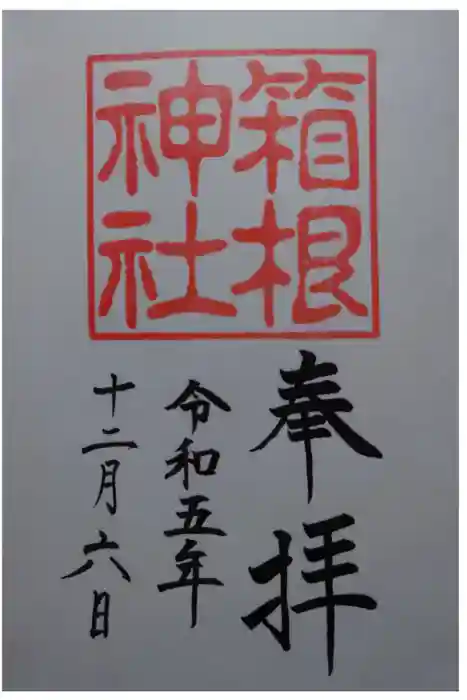 箱根
神社
奉拝
令和五年
十二月六日